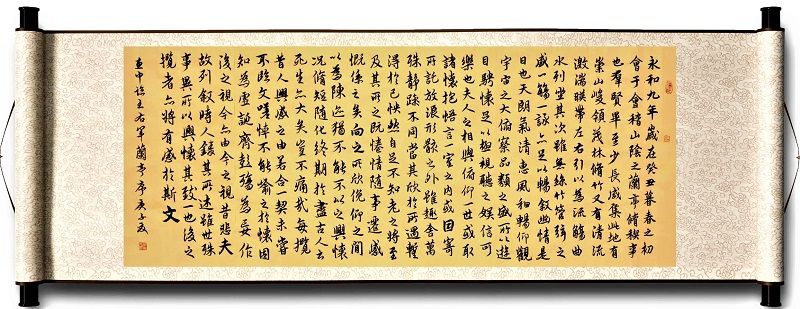 永和九年歲在癸丑暮春之初
會于會稽山陰之蘭亭脩稧事
也群賢畢至少長咸集此地有
崇山峻領茂林脩竹又有清流
激湍暎帶左右引以為流觴曲
水列坐其次雖無絲竹管弦之
盛一觴一詠亦足以暢敘幽情是
日也天朗氣清惠風和暢仰觀
宇宙之大俯察品類之盛所以遊
目騁懷足以極視聽之娛信可
樂也夫人之相與俯仰一世或取
諸懷抱悟言一室內或因寄
所託放浪形骸之外雖趣舍萬
殊靜躁不同當其欣於所遇暫
得於己怏然自足不知老之將至
及其所之既惓情隨事遷感
慨係之矣向之所欣俛仰之間
以為陳迹猶不能不以之興懷
况脩短隨化終期於盡古人云
死生亦大矣豈不痛哉每攬
昔人興感之由若合一契未嘗
不臨文嗟悼不能喻之於懷固
知為虛誕齊彭殤為妄作
後之視今亦由今之視昔悲夫
故列敘時人錄其所述雖世殊
事異所以興懷其致一也後之
攬者亦將有感於斯文
王右軍蘭亭序庚子